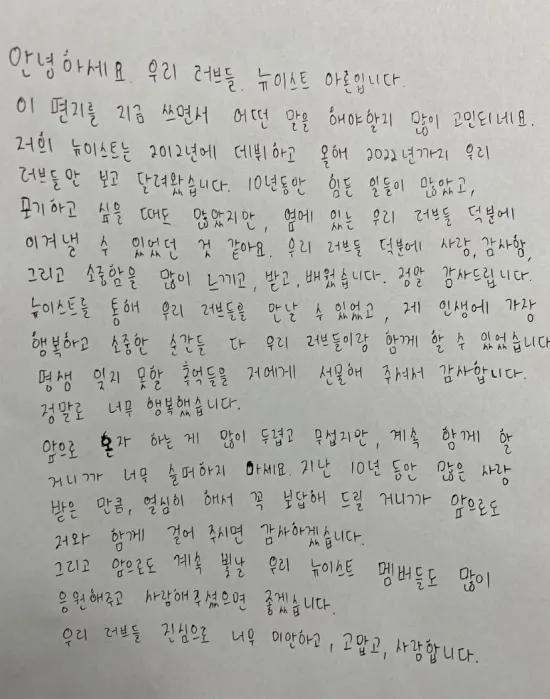 안녕하세요. 우리 러브들. 뉴이스트 아론입니다.
이 편지를 지금 쓰면서 어떤 말을 해야할지 많이 고민되네요.
저희 뉴이스트는 2012년에 데뷔하고 올해 2022년까지 우리
러브들만 보고 달려왔습니다. 10년동안 힘든 일들이 많았고,
포기하고 싶을 때도 많았지만, 옆에 있는 우리 러브들 덕분에
이겨낼 수 있었던 것 같아요. 우리 러브들 덕분에 사랑, 감사함,
그리고 소중함을 많이 느끼고, 받고, 배웠습니다. 정말 감사드립니다.
뉴이스트를 통해 우리 러브들을 만날 수 있었고, 제 인생에 가장
행복하고 소중한 순간들 다 우리 러브들이랑 함께 할 수 있었습니다
평생 잊지 못할 추억들을 저에게 선물해 주셔서 감사합니다.
정말로 너무 행복했습니다.
앞으로 혼자 하는 게 많이 두렵고 무섭지만, 계속 함께 할
거니까 너무 슬퍼하지 마세요. 지난 10년 동안 많은 사랑
받은 만큼, 열심히 해서 꼭 보답해 드릴 거니까 앞으로도
저와 함께 걸어 주시면 감사하겠습니다.
그리고 앞으로도 계속 빛날 우리 뉴이스트 멤버들도 많이
응원해주고 사랑해주셨으면 좋겠습니다.
우리 러브들 진심으로 너무 미안하고, 고맙고, 사랑합니다.